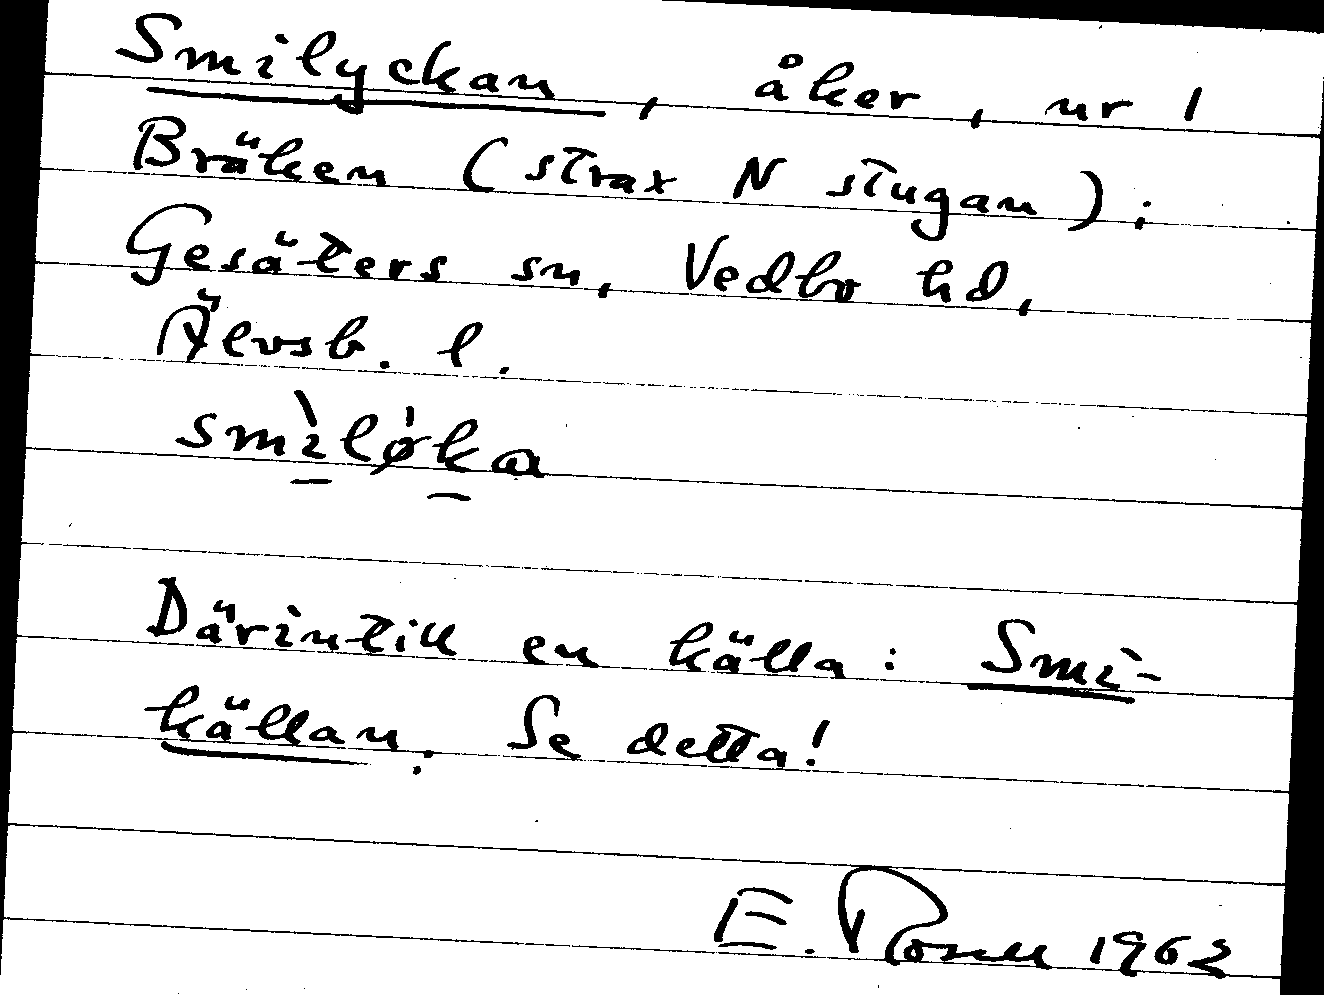 Smilyckan, åker, nr 1
Bräken (strax N stugan);
Gesäters sn, Vedbo hd,
Älvsb. l.
smìlø̍ka
Därintill en källa: Smi-
källan. Se detta!
E. Rosell 1962